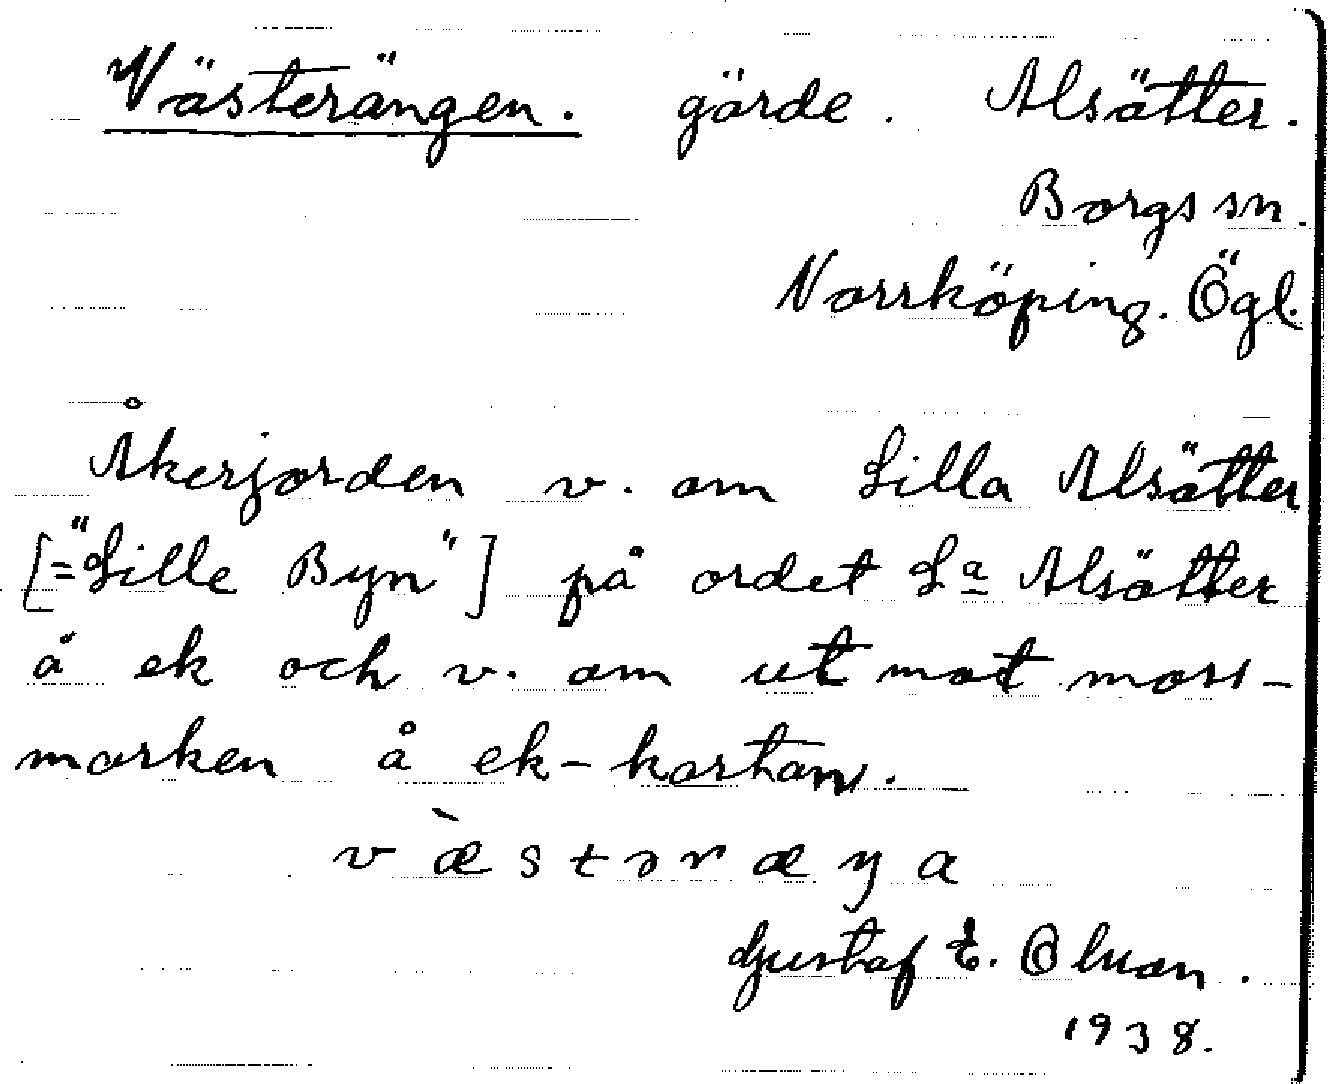 Västerängen. gärde. Alsätter.
Borgs sn.
Norrköping. Ögl.
Åkerjorden v. om Lilla Alsätter
[="Lille Byn"] på ordet Lª Alsätter
å ek och v. om ut mot moss-
marken å ek-kartan.
væ̀stəræŋa
Gustaf E. Olson.
1938.